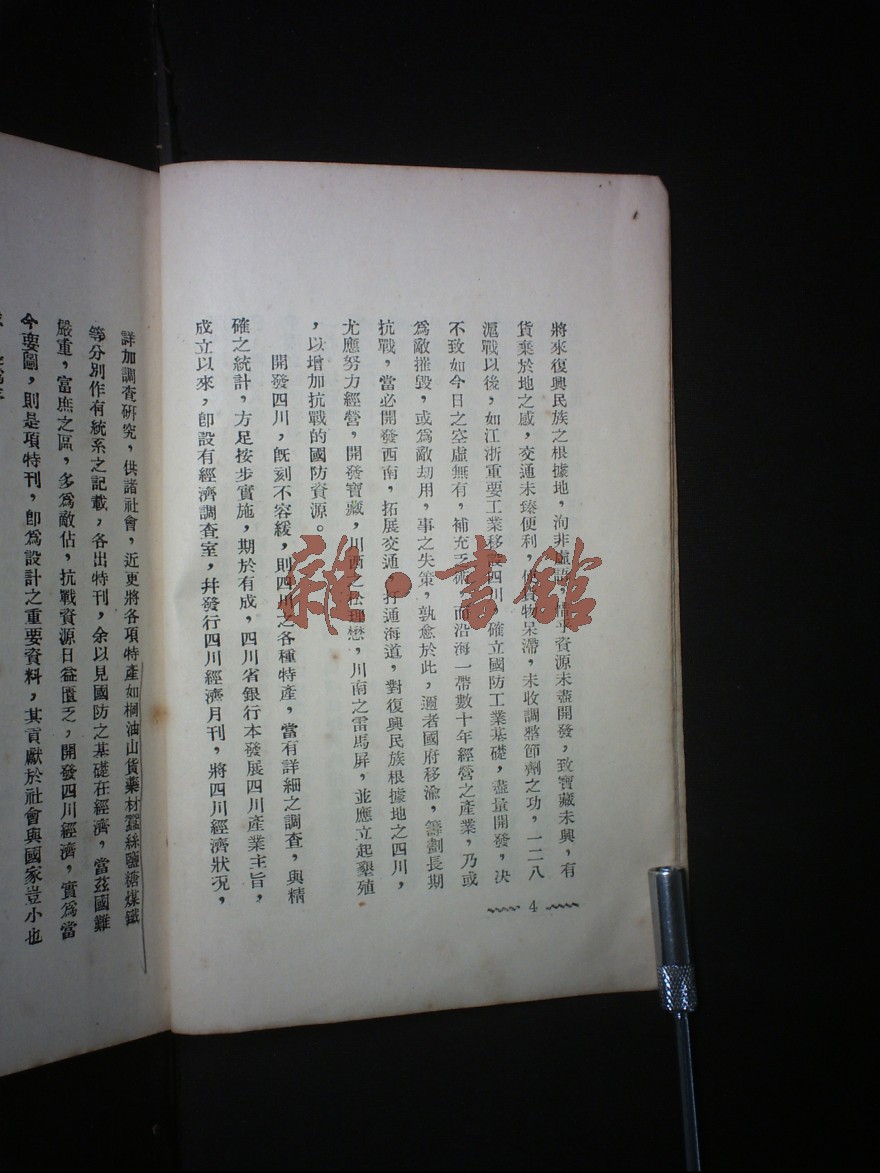 將來復興民族之根據地，洵非虛語，惜乎資源未盡開發，致寶藏未興，有
貨棄於地之感，交通未臻便利，使貨物呆滯，未收調整節劑之功，一二八
滬戰以後，如江浙重要工業移設四川，確立國防工業基礎，盡量開發，決
不致如今日之空虛無有，補充乏術，而沿海一帶數十年經營之產業，乃或
為敵摧毀，或為敵刧用，事之失策，孰愈於此，邇者國府移渝，籌劃長期
抗戰，當必開發西南，拓展交通，打通海道，對復興民族根據地之四川，
尤應努力經營，開發寶藏，川西之松理懋，川南之雷馬屏，並應立起墾殖
，以增加抗戰的國防資源。
開發四川，旣刻不容緩，則四川之各種特產，當有詳細之調查，與精
確之統計，方足按步實施，期於有成，四川省銀行本發展四川產業主旨，
成立以來，卽設有經濟調查室，幷發行四川經濟月刊，將四川經濟狀况，
4
詳加調查研究，供諸社會，近更將各項特產如桐油山貨藥材蠶絲鹽糖煤鐵
等分別作有統系之記載，各出特刊，余以見國防之基礎在經濟，當茲國難
嚴重，富庶之區，多為敵佔，抗戰資源日益匱乏，開發四川經濟，實為當
今要圖，則是項特刊，卽為設計之重要資料，其貢獻於社會與國家豈小也
雜·書館